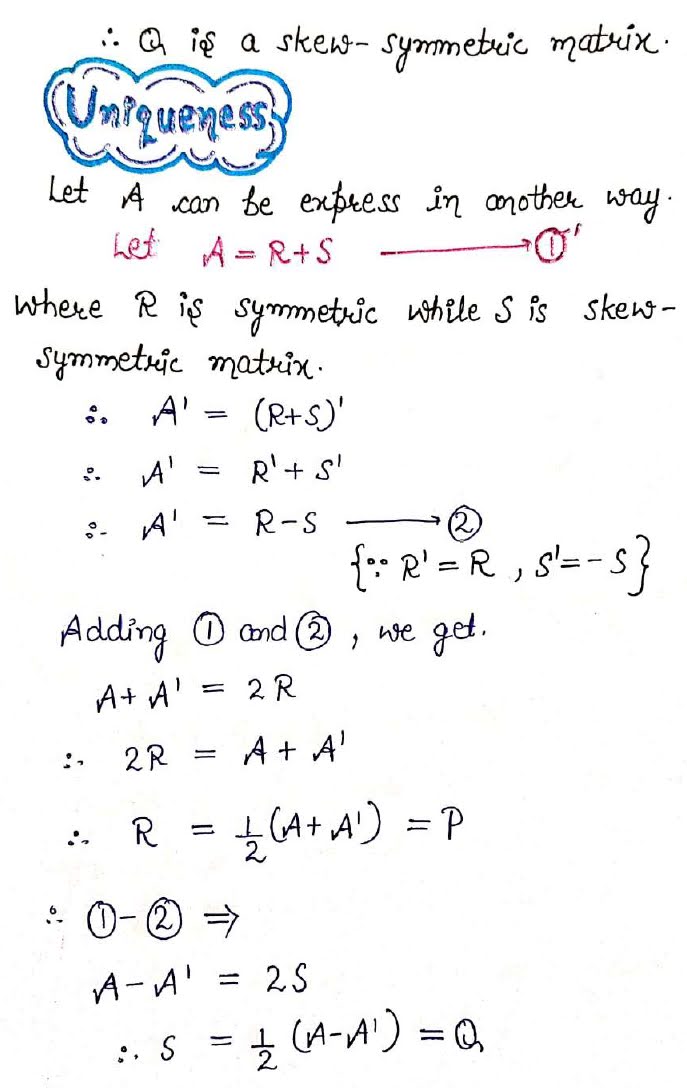 ∴ Q is a skew-symmetric matrix.
Uniqueness
Let A can be express in another way.
Let A = R+S ⟶ ①'
where R is symmetric while S is skew-
symmetric matrix.
∴ A' = (R+S)'
∴ A' = R'+ S'
∴ A' = R-S ⟶ ②
{∵ R' = R , S'=-S}
Adding ① and ② , we get.
A+ A' = 2R
∴ 2R = A + A'
∴ R = 1/2 (A+ A') = P
∴ ①-② ⇒
A-A' = 2S
∴ S = 1/2 (A-A') = Q